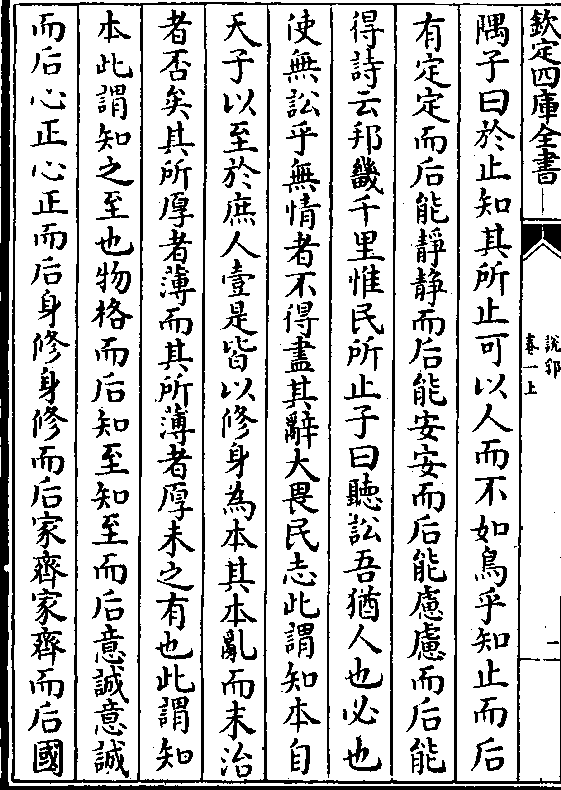 欽定四庫全書
說郛
卷一上
一
隅子曰於止知其所止可以人而不如鳥乎知止而后
有定定而后能靜静而后能安安而后能慮慮而后能
得詩云邦畿千里惟民所止子曰聽訟吾猶人也必也
使無訟乎無情者不得盡其辭大畏民志此謂知本自
天子以至於庶人壹是皆以修身為本其本亂而末治
者否矣其所厚者薄而其所薄者厚未之有也此謂知
本此謂知之至也物格而后知至知至而后意誠意誠
而后心正心正而后身修身修而后家齊家齊而后國